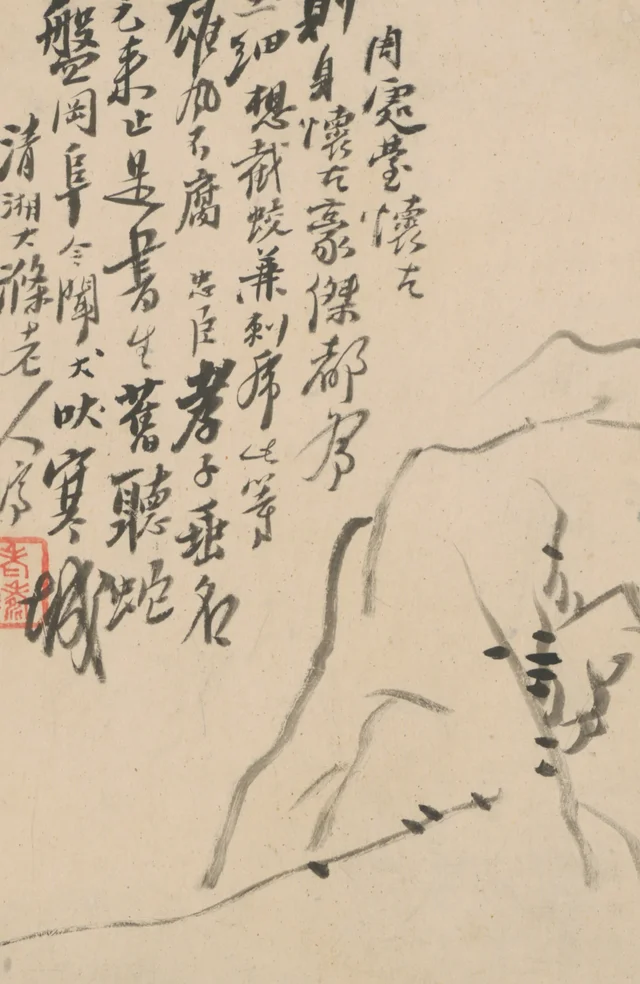 周處臺懷古
身懷古豪傑都
細想截蛟兼刺虎此等
雄風不腐忠臣孝子垂名
來止是書生舊聽蛇
盤岡阜今聞犬吠寒城
清湘大滌老人濟